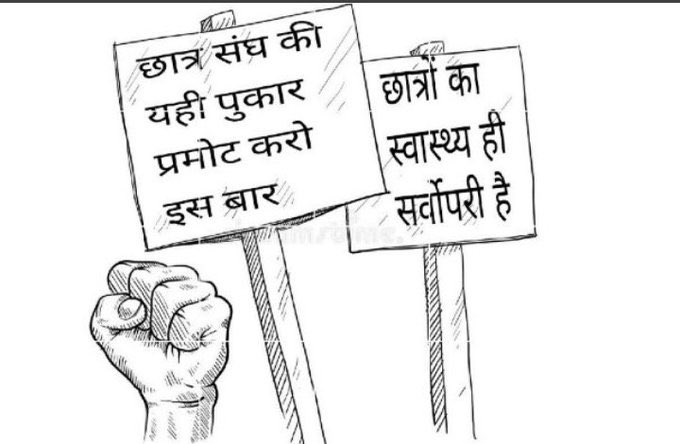 छात्र संघ की
यही पुकार
प्रमोट करो
इस बार
छात्रों का
स्वास्थ्य ही
सर्वोपरी है